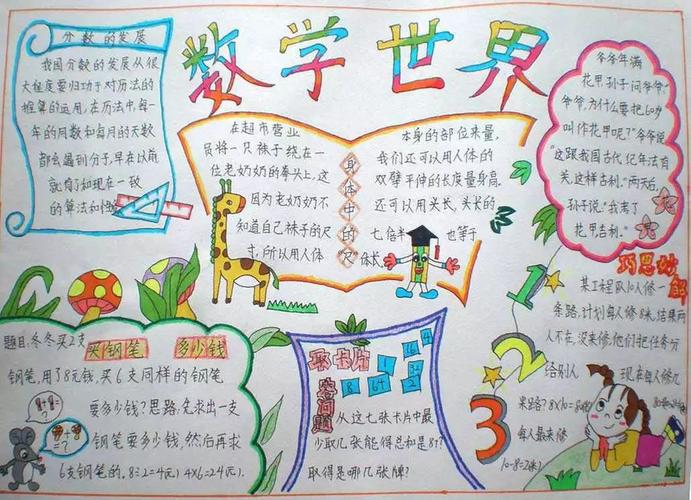 数学世界
分数的发展
我国分数的发展从很
大程度要归功于对历法的
推算的运用,在历法中,每一
年的周数和每月的天数
都会遇到分子,早在以前
就有了如现在一致
的算法和性
在超市营业
员将一只袜子绕在一
位老奶奶的拳头上,这
因为老奶奶不
知道自己袜子的尺
寸,所以用人体
身体中的"尺"
本身的部位来量,
我们还可以用人体的
双臂平伸的长度量身高,
还可以用头长,头长的
七倍半 也等于
体长
爷爷年满
花甲,孙子问爷爷:"
爷爷,为什么要把60岁
叫作花甲呢?"爷爷说
"这跟我国古代纪年法有
关,这样吉利。"两天后,
孙子说:"我考了
花甲,吉利。"
巧思妙
解
某工程队10人修一
条路,计划每人修8米,结果两
人不在,没来修,他们把任务分
给别人 现在每人修几
米路?8×10=80(米)
每人最来修
10-8=2(米)
1
2
3
题目:冬冬买2支
买钢笔 多少钱
钢笔,用了8元钱,买6支同样的钢笔
要多少钱?思路,先求出一支
钢笔要多少钱,然后再求
6支钢笔的。8÷2=4(元) 4×6=24(元).
取卡片
答问题
从这七张卡片中最
少取几张能得总和是87?
取得是哪几张牌?